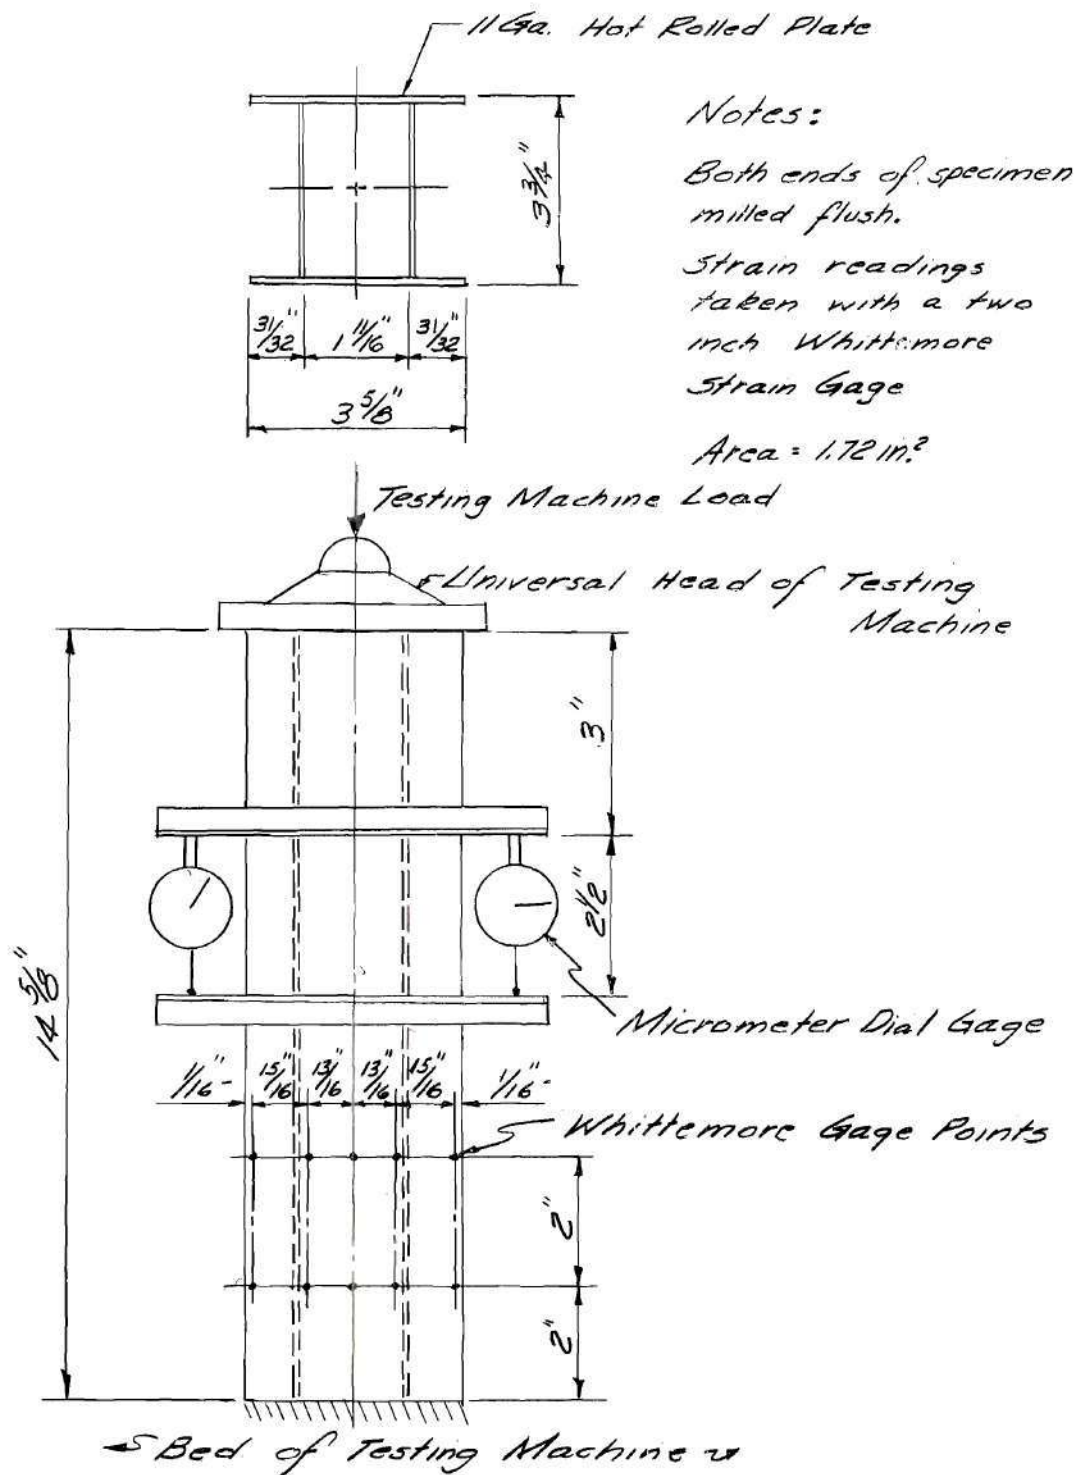 11 Ga. Hot Rolled Plate
Notes:
Both ends of specimen
milled flush.
Strain readings
taken with a two
inch Whittemore
Strain Gage
Area = 1.72 in.²
3 3/4"
31/32" 1 11/16" 31/32"
3 5/8"
Testing Machine Load
Universal Head of Testing
Machine
3"
2 1/2"
14 5/8"
Micrometer Dial Gage
1/16" 15/16" 13/16" 13/16" 15/16" 1/16"
Whittemore Gage Points
2"
2"
Bed of Testing Machine